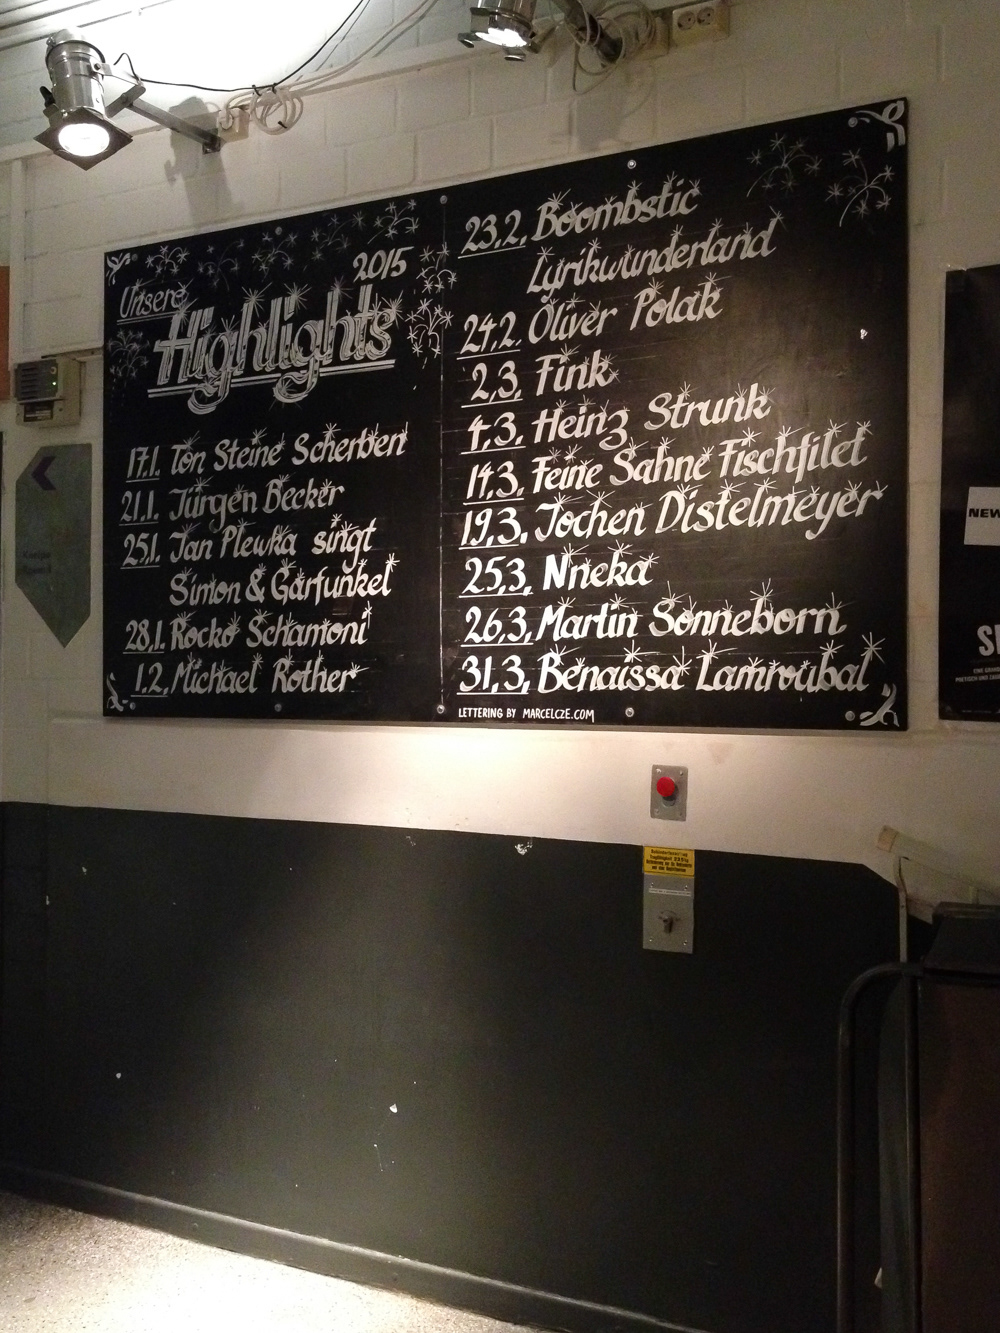 Unsere
2015
Highlights
17.1. Ton Steine Scherben
21.1. Jürgen Becker
25.1. Jan Plewka singt
Simon & Garfunkel
28.1. Rocko Schamoni
1.2. Michael Rother
23.2. Boombstic
Lyrikwunderland
24.2. Oliver Polak
2.3. Fink
4.3. Heinz Strunk
14.3. Feine Sahne Fischfilet
19.3. Jochen Distelmeyer
25.3. Nneka
26.3. Martin Sonneborn
31.3. Benaissa Lamroubal
LETTERING BY MARCELCZE.COM
NEW